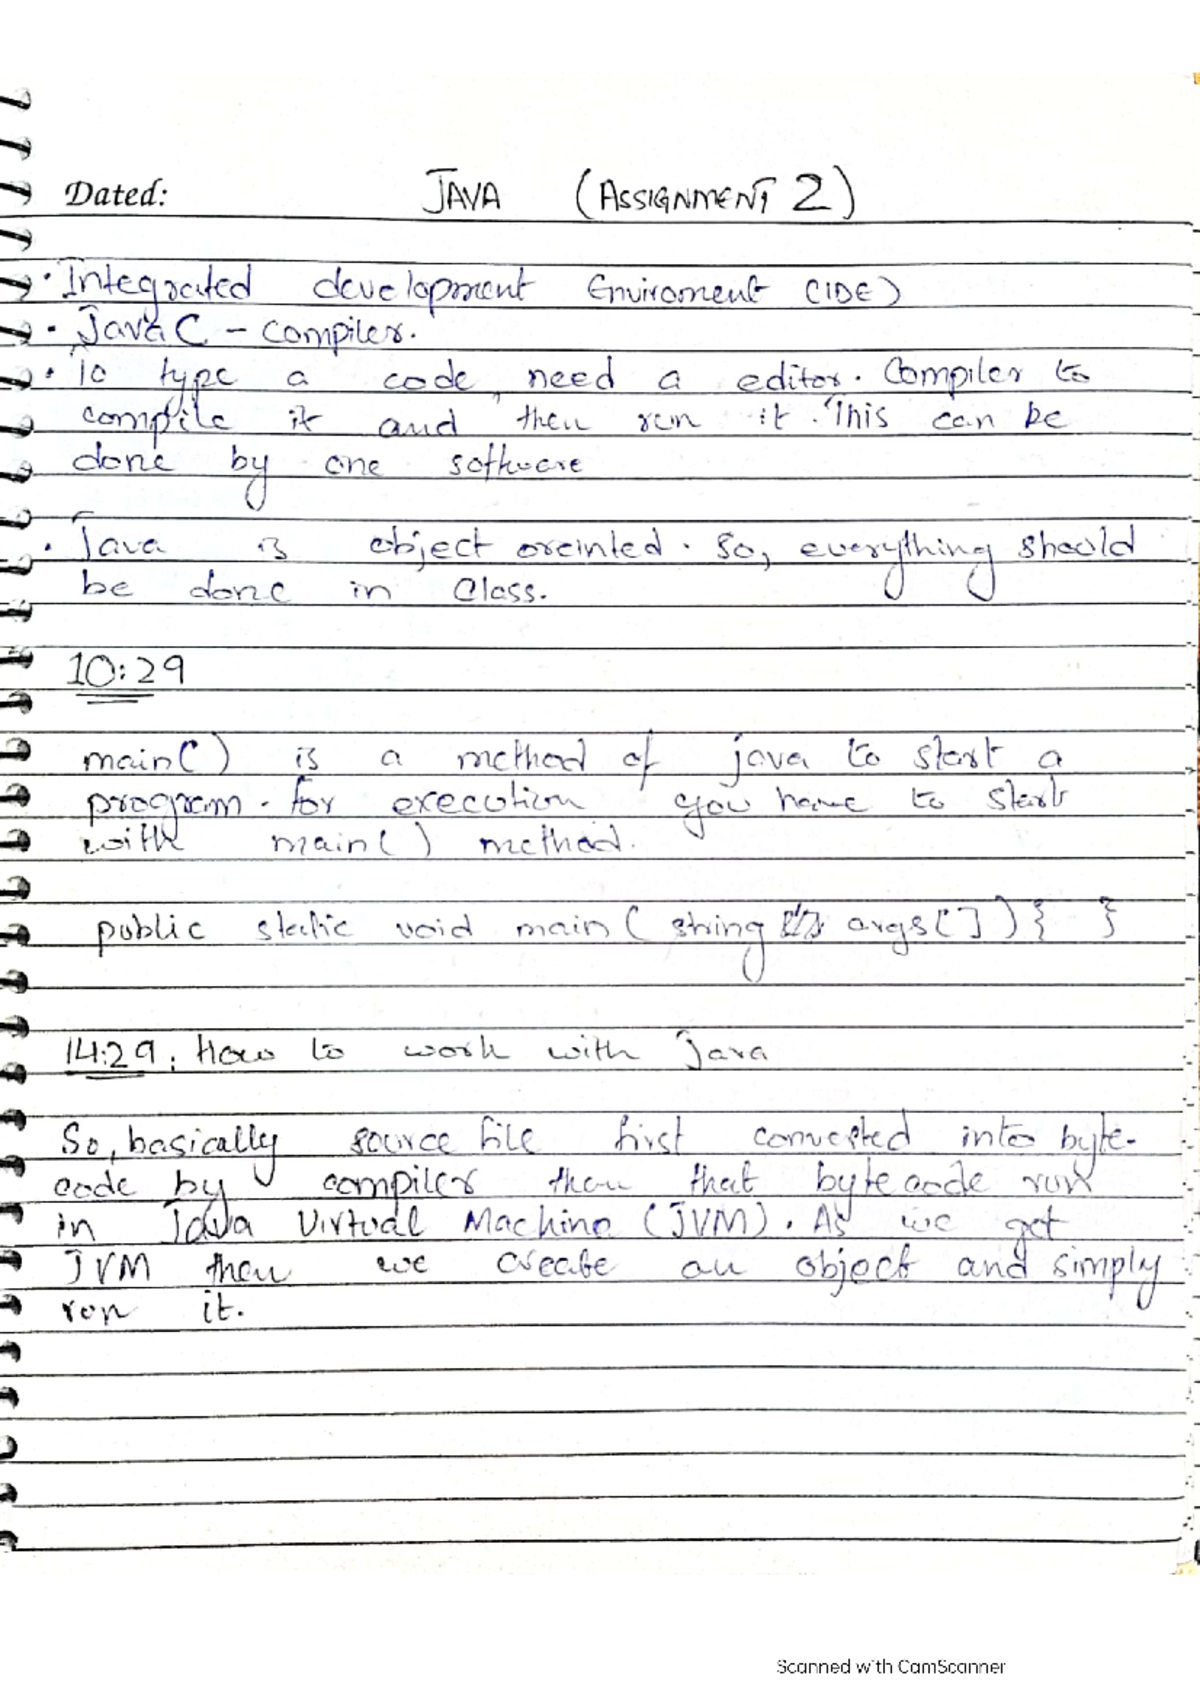 Dated: JAVA (ASSIGNMENT 2)
• Integrated development Enviroment (IDE)
• Java C - compiler.
• To type a code, need a editor. Compiler to
compile it and then run it. This can be
done by one software
• Java is object oreinted. So, everything should
be done in Class.
10:29
main() is a method of java to start a
program. for execution you have to start
with main() method.
public static void main( string args[]){ }
14:29: How to work with Java
So, basically source file first converted into byte-
code by compiler then that bytecode run
in Java Virtual Machine (JVM). As we get
JVM then we create an object and simply
run it.
Scanned with CamScanner